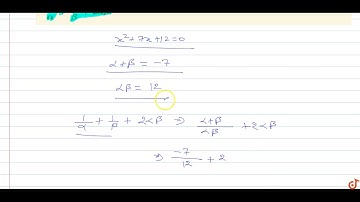 x² + 7x + 12 = 0
α + β = -7
αβ = 12
1/α + 1/β + 2αβ ⇒ (α+β)/αβ + 2αβ
⇒ -7/12 + 2